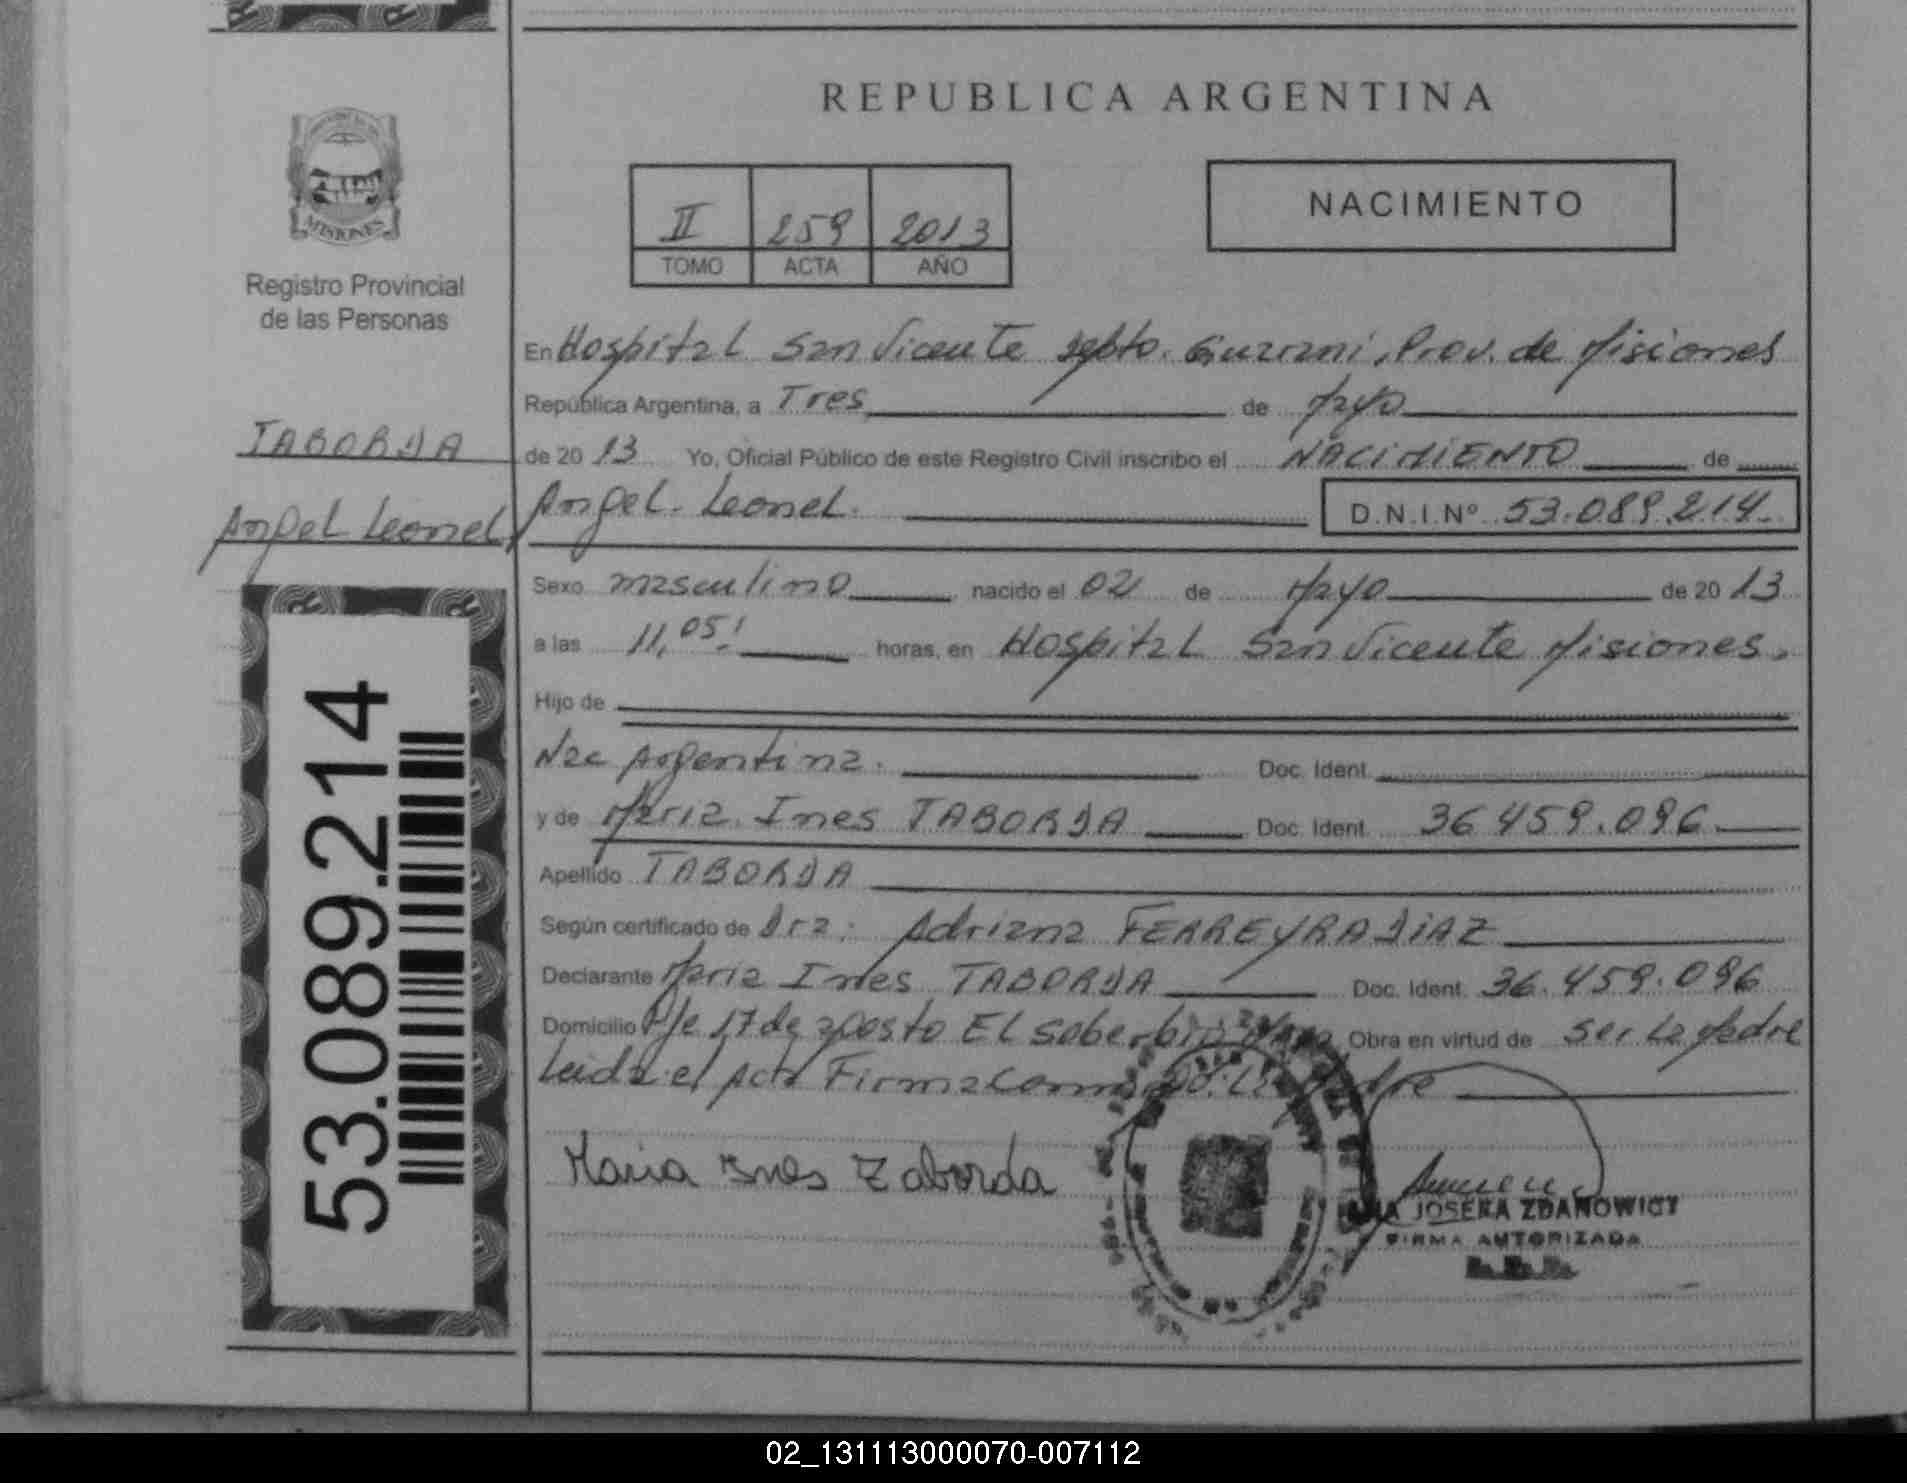 REPUBLICA ARGENTINA
MISIONES
Registro Provincial
de las Personas
II 259 2013
TOMO ACTA AÑO
NACIMIENTO
En Hospital San Vicente Depto. Guarani, Prov. de Misiones
República Argentina, a Tres de Mayo
de 20 13 Yo, Oficial Público de este Registro Civil inscribo el NACIMIENTO de
TABORDA
Angel Leonel
Angel Leonel. D.N.I.Nº 53.089.214
Sexo masculino nacido el 02 de Mayo de 20 13
a las 11,05' horas, en Hospital San Vicente Misiones.
Hijo de
Nac Argentina. Doc. Ident.
y de Maria Ines TABORDA Doc. Ident. 36.459.096
Apellido TABORDA
Según certificado de Dra: Adriana FERREYRA DIAZ
Declarante Maria Ines TABORDA Doc. Ident. 36.459.096
Domicilio Pje 17 de agosto El Soberbio Obra en virtud de ser La Madre
Leida el Acta Firma La Madre
Maria Ines Taborda
JOSEFA ZDANOWICZ
FIRMA AUTORIZADA
53.089.214
02_131113000070-007112